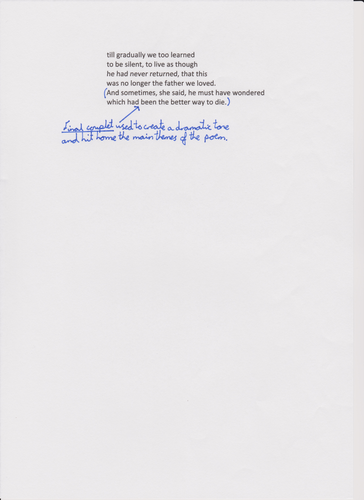 till gradually we too learned
to be silent, to live as though
he had never returned, that this
was no longer the father we loved.
(And sometimes, she said, he must have wondered
which had been the better way to die.)
Final couplet used to create a dramatic tone
and hit home the main themes of the poem.